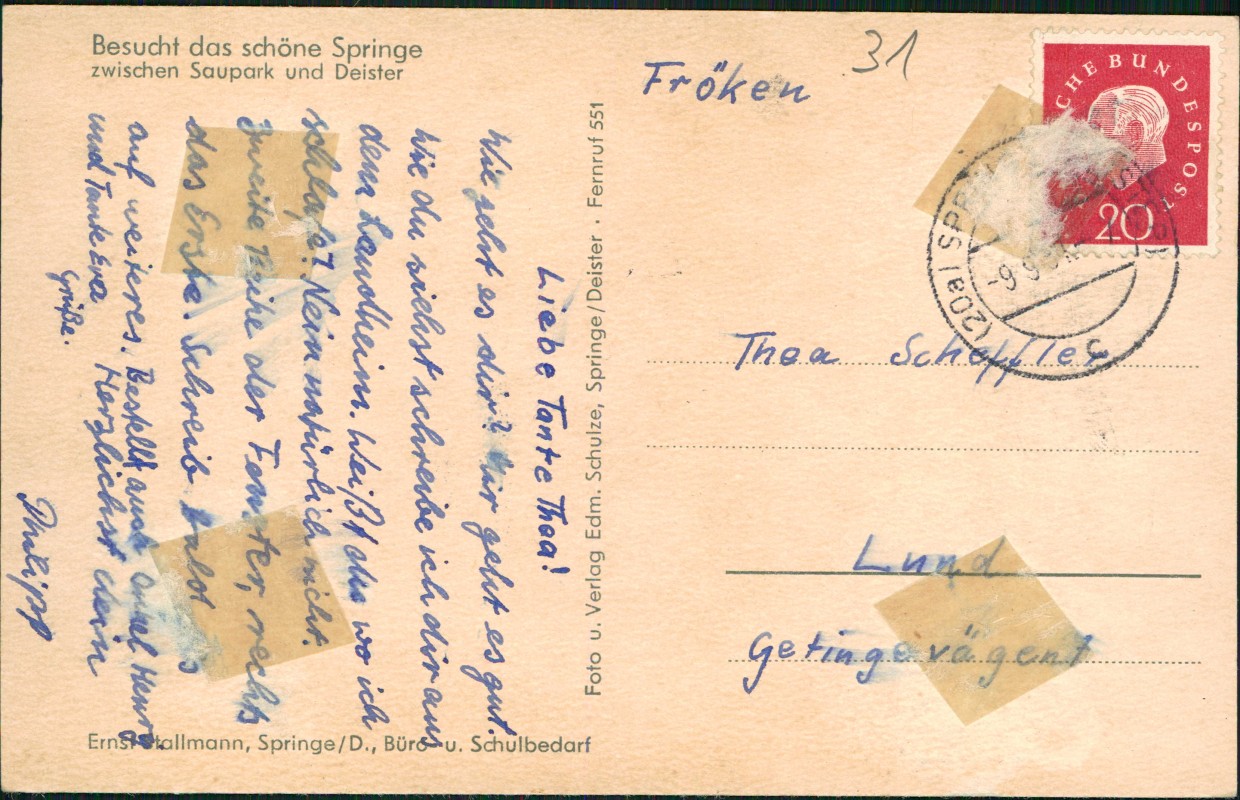 Besucht das schöne Springe
zwischen Saupark und Deister
Liebe Tante Thea!
Wie geht es dir? Mir geht es gut.
Wie du siehst schreibe ich dir aus
dem Landheim. Weißt du wo ich
schlafe? Nein natürlich nicht.
Zweite Reihe der Fenster, rechts
das Erste. Schreib bald
auf weiteres. Bestellt auch Onkel Henry
und Tante Eva
Grüße.
Herzlichst dein
Philipp
Ernst Stallmann, Springe/D., Büro- u. Schulbedarf
Foto u. Verlag Edm. Schulze, Springe/Deister · Fernruf 551
31
Fröken
CHE BUNDESPOST
20
(20a) SPR
-9.9.
Thea Scheffler
Lund
Getingevägen 1